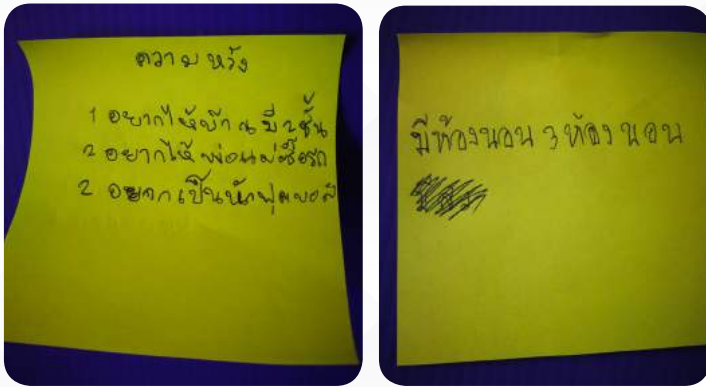 ความหวัง
1 อยากให้บ้านมี 2 ชั้น
2 อยากให้พ่อแม่ซื้อรถ
2 อยากเป็นนักฟุตบอล
มีห้องนอน 3 ห้องนอน